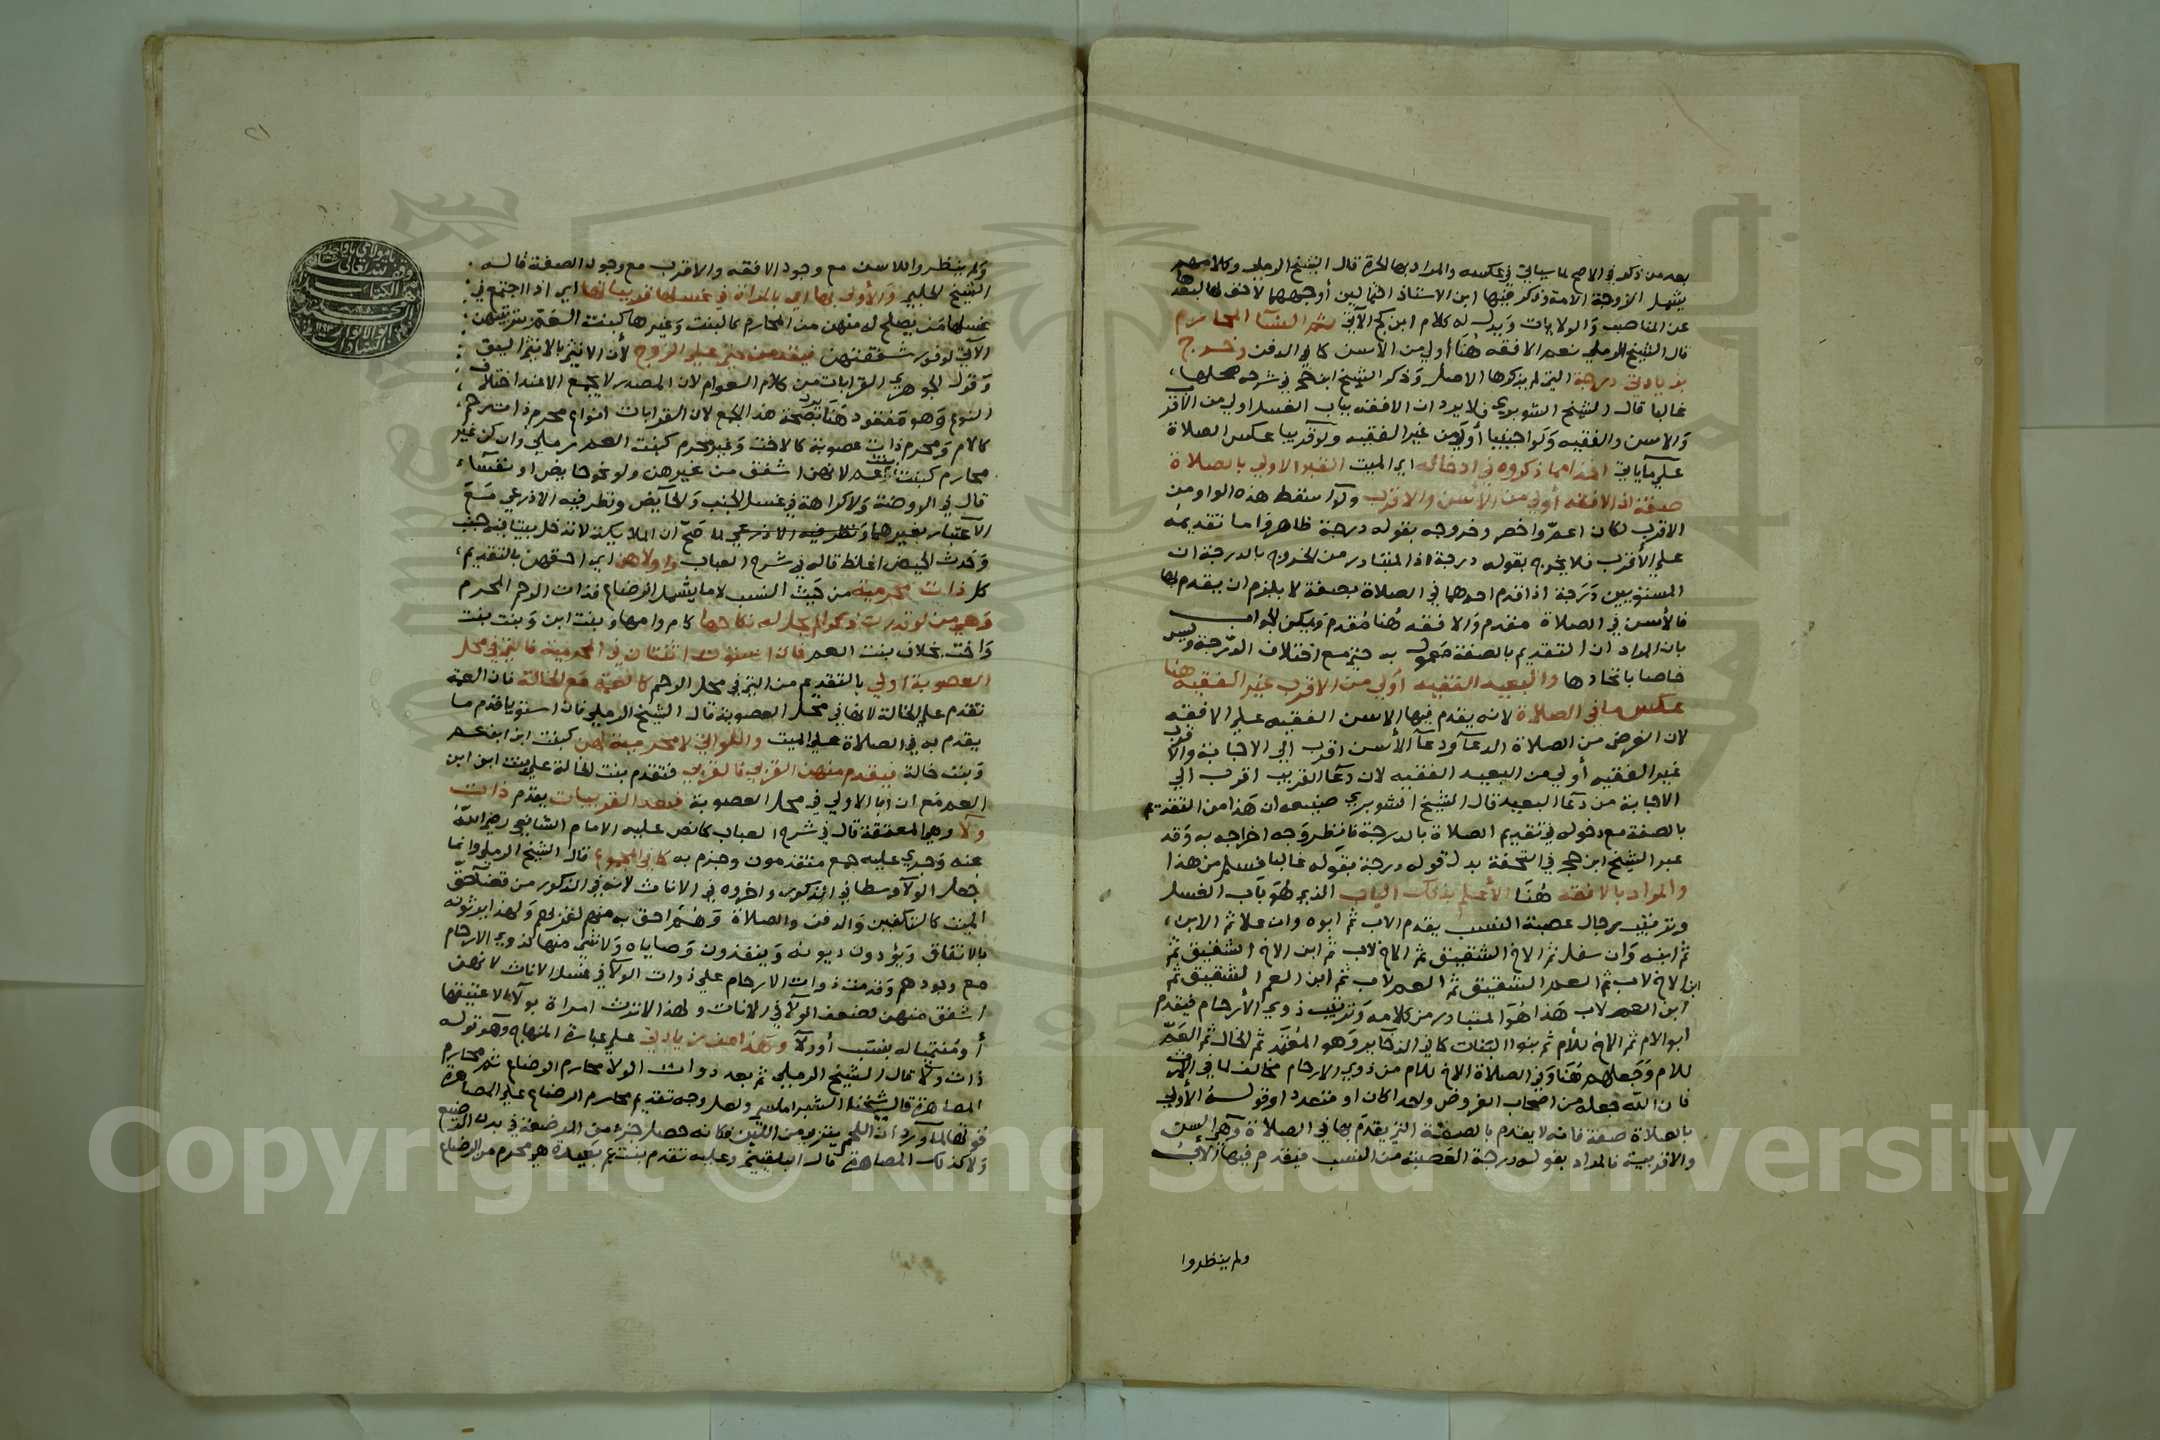 بعد من ذكر في الاصح لما سياتي في عكسه والمراد بها الحرة قال الشيخ الرملي وكلامهم
يشمل الزوجة الامة وذكر فيها ابن الاستاذ احتمالين أوجههما لا حق لها لبعدها
عن المناصب والولايات ويدل له كلام ابن كج الآتي ثم النسا المحارم
قال الشيخ الرملي نعم الافقه هنا أولي من الاسن كما في الدفن وخرج
بزيادتي درجة التي لم يذكرها الاصل وذكر الشيخ ابن حجر في شرحه محلها
غالبا قال الشيخ الشوبري فلا يرد ان الافقه بباب الغسل اولي من الاقرب
والاسن والفقيه ولو اجنبيا أولي من غير الفقيه ولو قريبا عكس الصلاة
علي ما ياتي اخذا مما ذكروه في ادخاله اي الميت القبر الاولي بالصلاة
صفة اذ الافقه أولي من الأسن والاقرب ولو اسقط هذه الواو من
الاقرب لكان اعم واخصر وخروجه بقوله درجة ظاهر واما تقديمه
علي الأقرب فلا يخرج بقوله درجة اذ المتبادر من الخروج بالدرجة ان
المستويين درجة اذا قدم احدهما في الصلاة بصفة لا يلزم ان يقدم بها
فالأسن في الصلاة مقدم والافقه هنا مقدم ويمكن الجواب
بان المراد ان التقديم بالصفة معمول به حتى مع اختلاف الدرجة وليس
خاصا باتحادها والبعيد الفقيه أولي من الاقرب غير الفقيه هنا
عكس ما في الصلاة لانه يقدم فيها الاسن الفقيه علي الافقه
لان الغرض من الصلاة الدعا ودعا الأسن اقرب الي الاجابة والاقرب
غير الفقيه أولي من البعيد الفقيه لان دعا القريب اقرب الي
الاجابة من دعا البعيد قال الشيخ الشوبري صنيعه ان هذا من التقديم
بالصفة مع دخوله في تقديم الصلاة بالدرجة فانظر وجه اخراجه به وقد
عبر الشيخ ابن حجر في التحفة بدل قوله درجة بقوله غالبا فسلم من هذا
والمراد بالافقه هنا الأعلم بذلك الباب الذي هو باب الغسل
وترتيب رجال عصبة النسب يقدم الاب ثم ابوه وان علا ثم الابن
ثم ابنه وان سفل ثم الاخ الشقيق ثم الاخ لاب ثم ابن الاخ الشقيق ثم
ابن الاخ لاب ثم العم الشقيق ثم العم لاب ثم ابن العم الشقيق ثم
ابن العم لاب هذا هو المتبادر من كلامه وترتيب ذوي الأرحام فيقدم
ابو الام ثم الاخ للأم ثم بنوا البنات كما في الذخاير وهو المعتمد ثم الخال ثم العم
للام وجعلهم هنا وفي الصلاة الاخ للام من ذوي الارحام مخالف لما في الارث
فان الله جعله من اصحاب الفروض واحدا كان او متعددا وقوله الأولي
بالصلاة صفة فانه لا يقدم بالصفة التي يقدم بها في الصلاة وهي السن
والاقربية فالمراد بقوله درجة العصبة من النسب فيقدم فيها الأقرب
ولم ينظروا
٢١
ولم ينظروا للاسن مع وجود الافقه والاقرب مع وجود الصفة قاله
الشيخ الحلبي والأولي بها اي بالمرأة في غسلها قريباتها اي اذا اجتمع في
غسلها من يصلح له منهن من المحارم كالبنت وغيرها كبنت العم بترتيبهن
الآتي لوفور شفقتهن فيقدمن حتى علي الزوج لأن الانثى بالانثى اليق
وقول الجوهري القرابات من كلام العوام لان المصدر لا يجمع الا عند اختلاف
النوع وهو مفقود هنا بصحة هذا الجمع لان القرابات انواع محرم ذات رحم
كالام ومحرم ذات عصوبة كالاخت وغير محرم كبنت العم رملي وان كن غير
محارم كبنت عم لانهن اشفق من غيرهن ولو نحو حايض او نفساء
قال في الروضة ولا كراهة في غسل الجنب والحايض ونظر فيه الاذرعي مع
الاعتبار بغيرهما ونظر فيه الاذرعي لما صح ان الملايكة لا تدخل بيتا فيه جنب
وحدث الحيض اغلظ قاله في شرح العباب واولاهن اي احقهن بالتقديم
كل ذات محرمية من حيث النسب لا ما يشمل الرضاع فذات الرحم المحرم
وهي من لو قدرت ذكرا لم يحل له نكاحها كام وامها وبنت ابن وبنت بنت
واخت بخلاف بنت العم فان استوت اثنتان في المحرمية فالتي في محل
العصوبة اولي بالتقديم من التي في محل الرحم كالعمة مع الخالة فان العمة
تقدم علي الخالة لانها في محل العصوبة قال الشيخ الرملي فان استويا قدم بما
يقدم به في الصلاة علي الميت واللواتي لا محرمية لهن كبنت ابن ابن عم
وبنت خالة فيقدم منهن القربي فالقربي فتقدم بنت الخالة علي بنت ابن ابن
العم مع ان أبا الاولي في محل العصوبة فبعد القريبات يقدم ذات
ولا وهي المعتقة قال في شرح العباب كما نص عليه الامام الشافعي رضي الله
عنه وجري عليه جمع متقدمون وجزم به كما في المجموع قال الشيخ الرملي وانما
جعل الولا وسطا في الذكور واخروه في الاناث لانه في الذكور من قضا حق
الميت كالتكفين والدفن والصلاة وهم احق به منهم لقربهم ولهذا يرثونه
بالاتفاق ويؤدون ديونه وينفذون وصاياه ولا شي منها لذوي الارحام
مع وجودهم وقدمت ذوات الارحام علي ذوات الولا في غسل الاناث لانهن
اشفق منهن لضعف الولا في الاناث ولهذا لا ترث امراة بولا الا عتيقها
أو منتميا له بنسب أو ولا وهذا من زيادتي علي عبارة المنهاج وهو قوله
ذات ولا قال الشيخ الرملي ثم بعد ذوات الولا محارم الرضاع ثم محارم
المصاهرة قال شيخنا الشبراملسي ولعل وجه تقديم محارم الرضاع علي المصاهرة
قوتها لما ورد ان اللحم يتربي من اللبن فكانه حصل جزء من المرضعة في بدن الرضيع
ولا كذلك المصاهرة قال البلقيني وعليه تقدم بنت عم بعيدة هي محرم من الرضاع
Copyright © King Saud University